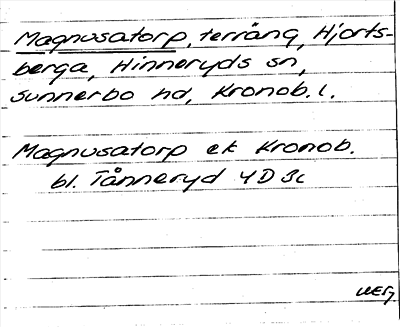 Magnusatorp, terräng, Hjorts-
berga, Hinneryds sn,
Sunnerbo hd, Kronob. l.
Magnusatorp ek Kronob.
bl. Tånneryd 4D 3c